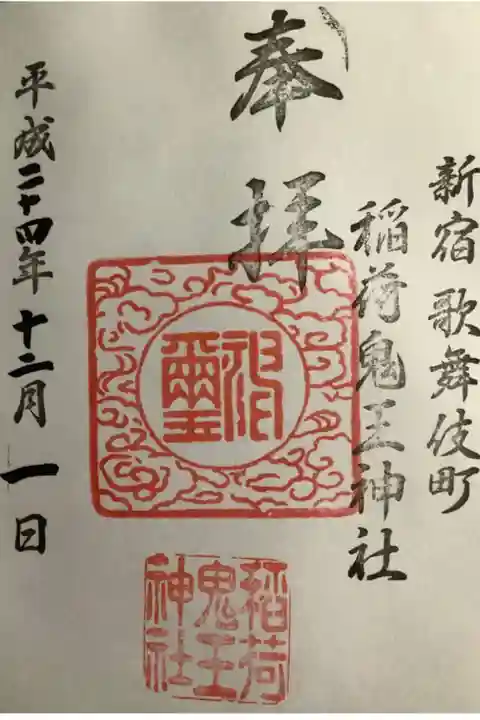 奉拝
新宿歌舞伎町
稲荷鬼王神社
平成二十四年十二月一日
神璽
稲荷
鬼王
神社